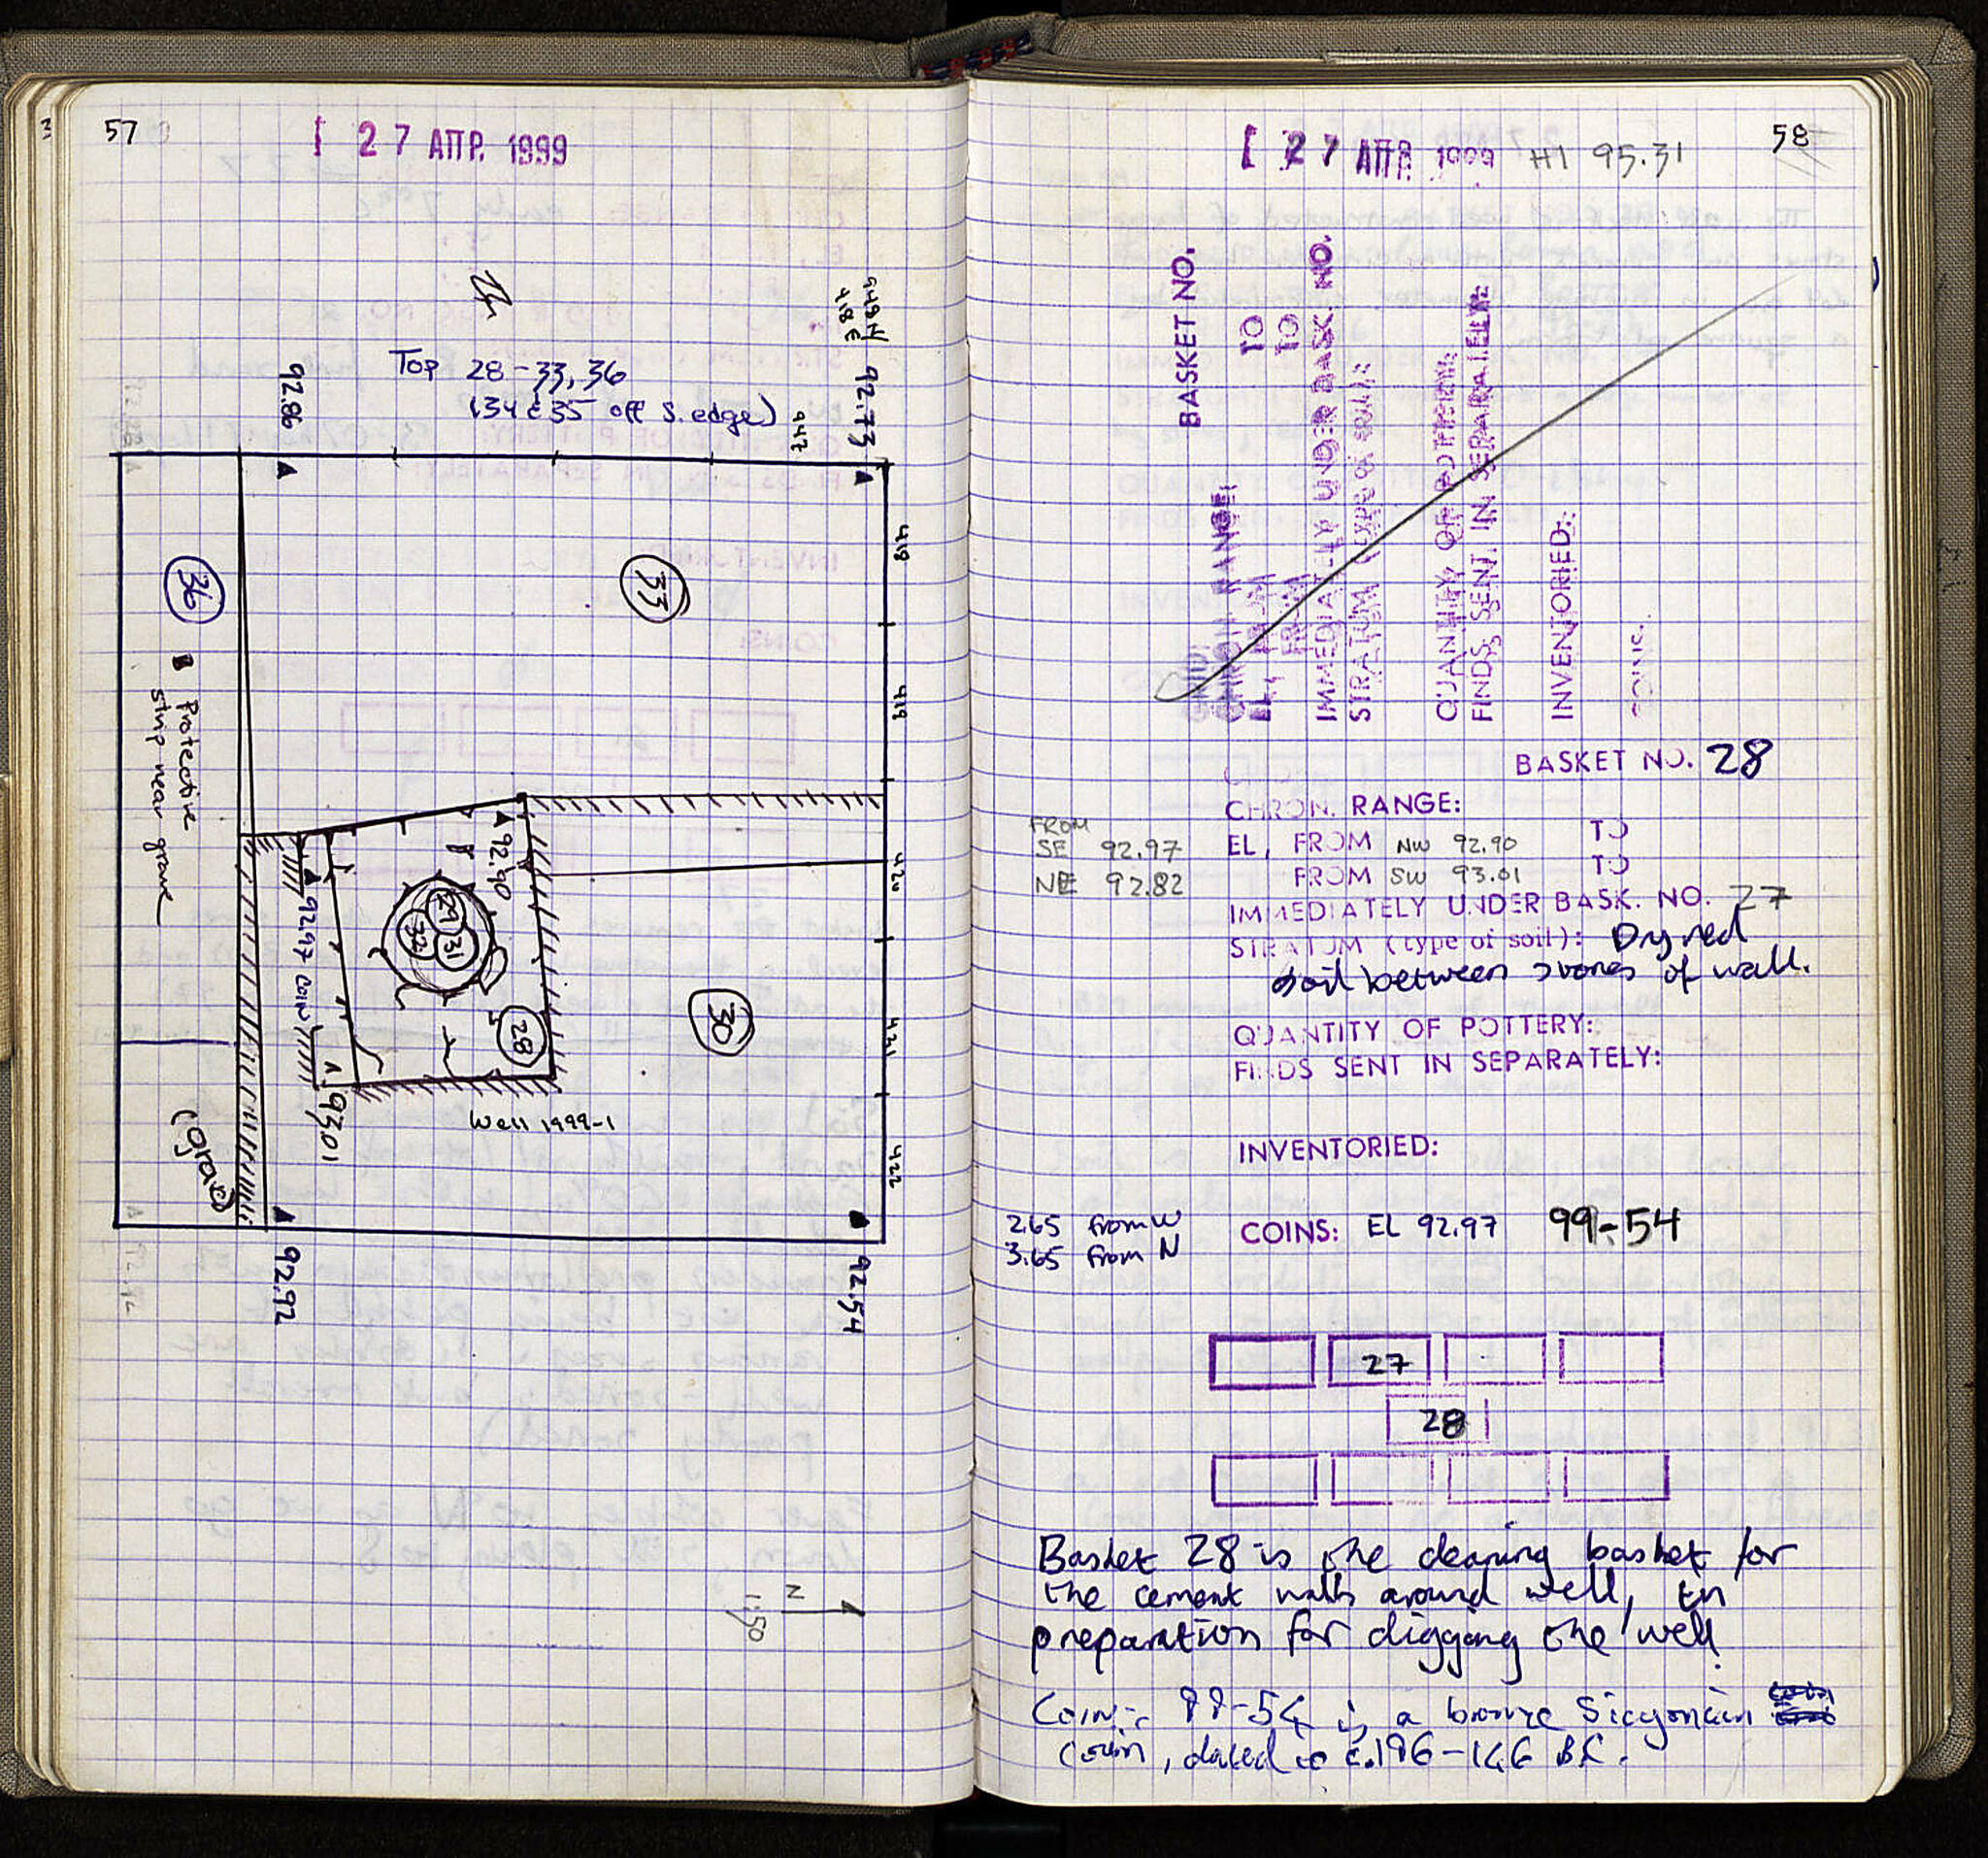 57
27 ΑΠΡ. 1999
948 N
418 E
Top 28-33, 36
(34 & 35 off S. edge)
92.86
92.73
947
418
36
33
Protective
strip near grave
419
92.90
420
29
32
31
92.97 coin
28
30
421
93.01
Well 1999-1
(grave)
422
92.92
92.54
N
1:50
27 ΑΠΡ. 1999 HI 95.31
58
BASKET NO.
GRID:
CHRON. RANGE:
EL, FROM TO
FROM TO
IMMEDIATELY UNDER BASK. NO.
STRATUM (type of soil):
QUANTITY OF POTTERY:
FINDS SENT IN SEPARATELY:
INVENTORIED:
COINS:
BASKET NO. 28
CHRON. RANGE:
FROM
SE 92.97 EL, FROM NW 92.90 TO
NE 92.82 FROM SW 93.01 TO
IMMEDIATELY UNDER BASK. NO. 27
STRATUM (type of soil): Dry red
soil between stones of wall.
QUANTITY OF POTTERY:
FINDS SENT IN SEPARATELY:
INVENTORIED:
2.65 from W COINS: EL 92.97 99-54
3.65 from N
27
28
Basket 28 is the cleaning basket for
the cement walls around well, in
preparation for digging the well.
Coin:- 99-54 is a bronze Sicyonian
coin, dated to c.196-146 BC.